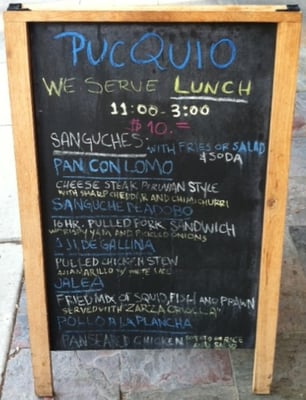 PUCQUIO
WE SERVE LUNCH
11:00-3:00
$10.=
SANGUCHES: WITH FRIES OR SALAD
& SODA
PAN CON LOMO
CHEESE STEAK PERUVIAN STYLE
WITH SHARP CHEDDAR AND CHIMICHURRI
SANGUCHE DE ADOBO
16 HR. PULLED PORK SANDWICH
W/ CRISPY YAM AND PICKLED ONIONS
AJI DE GALLINA
PULLED CHICKEN STEW
AJI AMARILLO W/ WHITE RICE
JALEA
FRIED MIX OF SQUID, FISH AND PRAWN
SERVED WITH "ZARZA CRIOLLA"
POLLO A LA PLANCHA
PAN SEARED CHICKEN POTATO OR RICE
AND